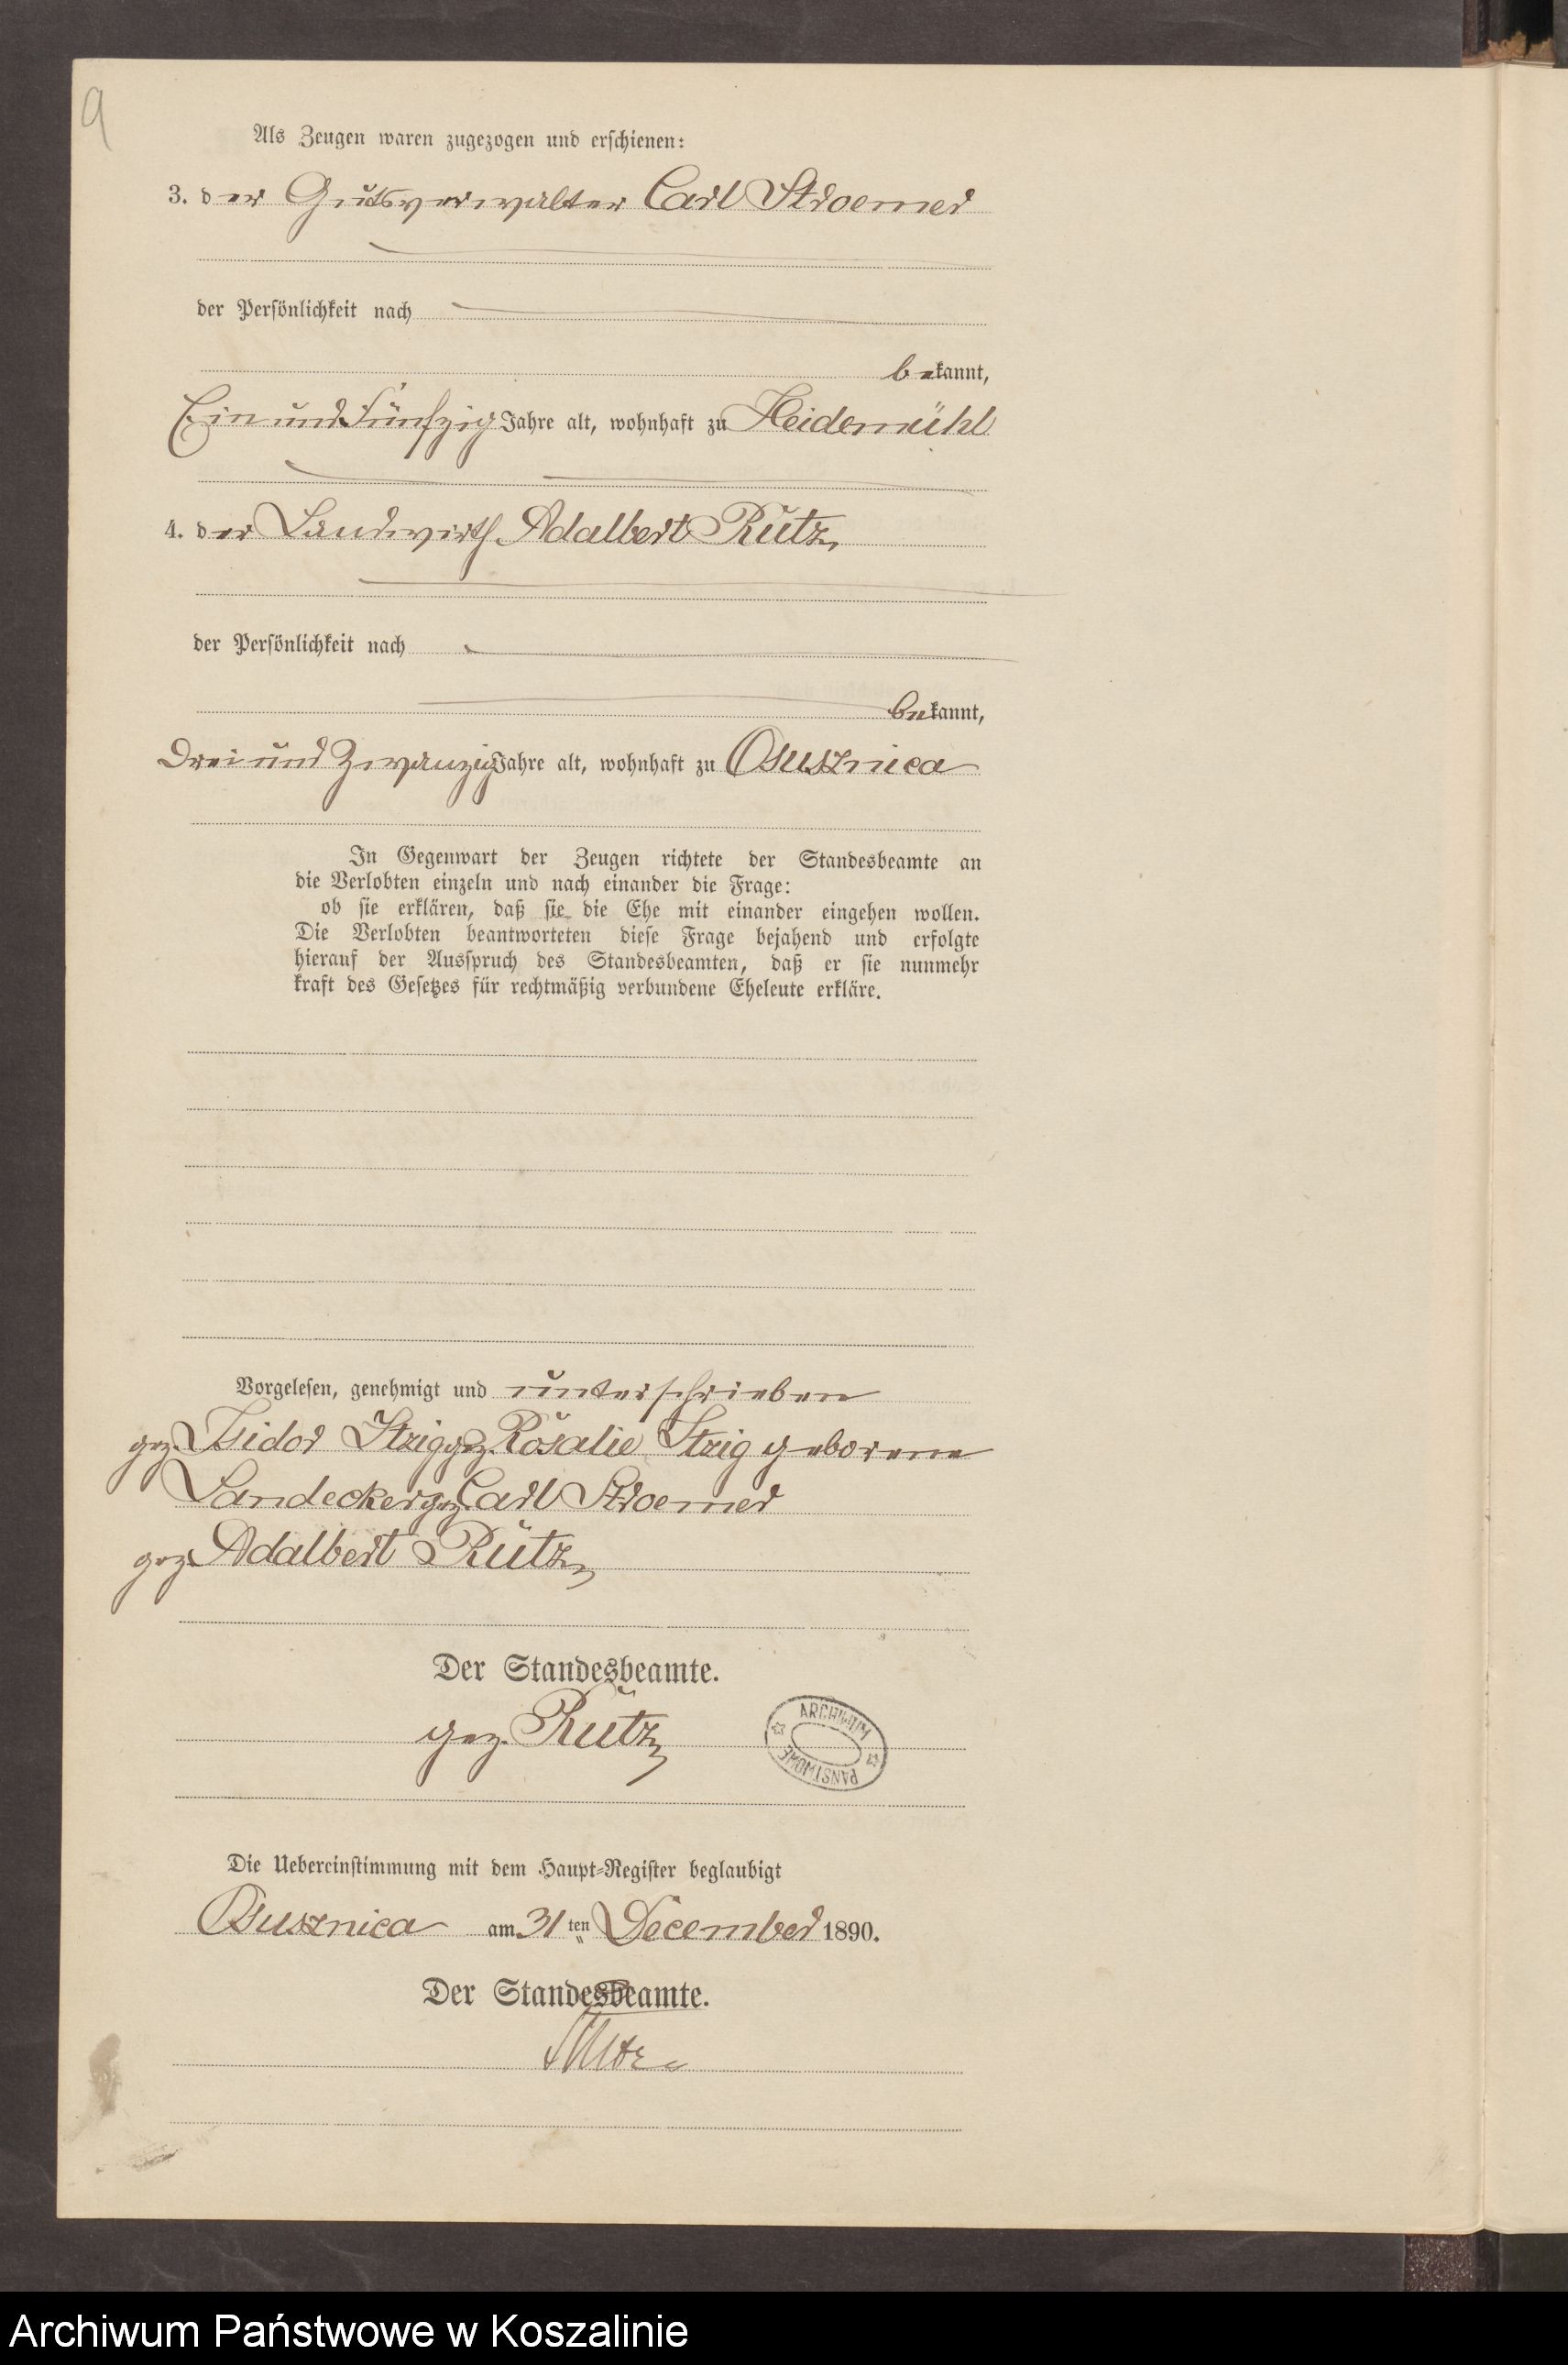 9
Als Zeugen waren zugezogen und erschienen:
3. der Gutsverwalter Carl Stroemer
der Persönlichkeit nach
bekannt,
Ein und Fünfzig Jahre alt, wohnhaft zu Heidemühl
4. der Landwirth Adalbert Rutz
der Persönlichkeit nach
bekannt,
Drei und Zwanzig Jahre alt, wohnhaft zu Osusznica
In Gegenwart der Zeugen richtete der Standesbeamte an
die Verlobten einzeln und nach einander die Frage:
ob sie erklären, daß sie die Ehe mit einander eingehen wollen.
Die Verlobten beantworteten diese Frage bejahend und erfolgte
hierauf der Ausspruch des Standesbeamten, daß er sie nunmehr
kraft des Gesetzes für rechtmäßig verbundene Eheleute erkläre.
Vorgelesen, genehmigt und unterschrieben
gez. Isidor Itzig gez. Rosalie Itzig geborene
Landecker gez. Carl Stroemer
gez. Adalbert Rutz
Der Standesbeamte.
gez. Rutz
ARCHIWUM PAŃSTWOWE
Die Uebereinstimmung mit dem Haupt-Register beglaubigt
Osusznica am 31 ten December 1890.
Der Standesbeamte.
Rutz
Archiwum Państwowe w Koszalinie